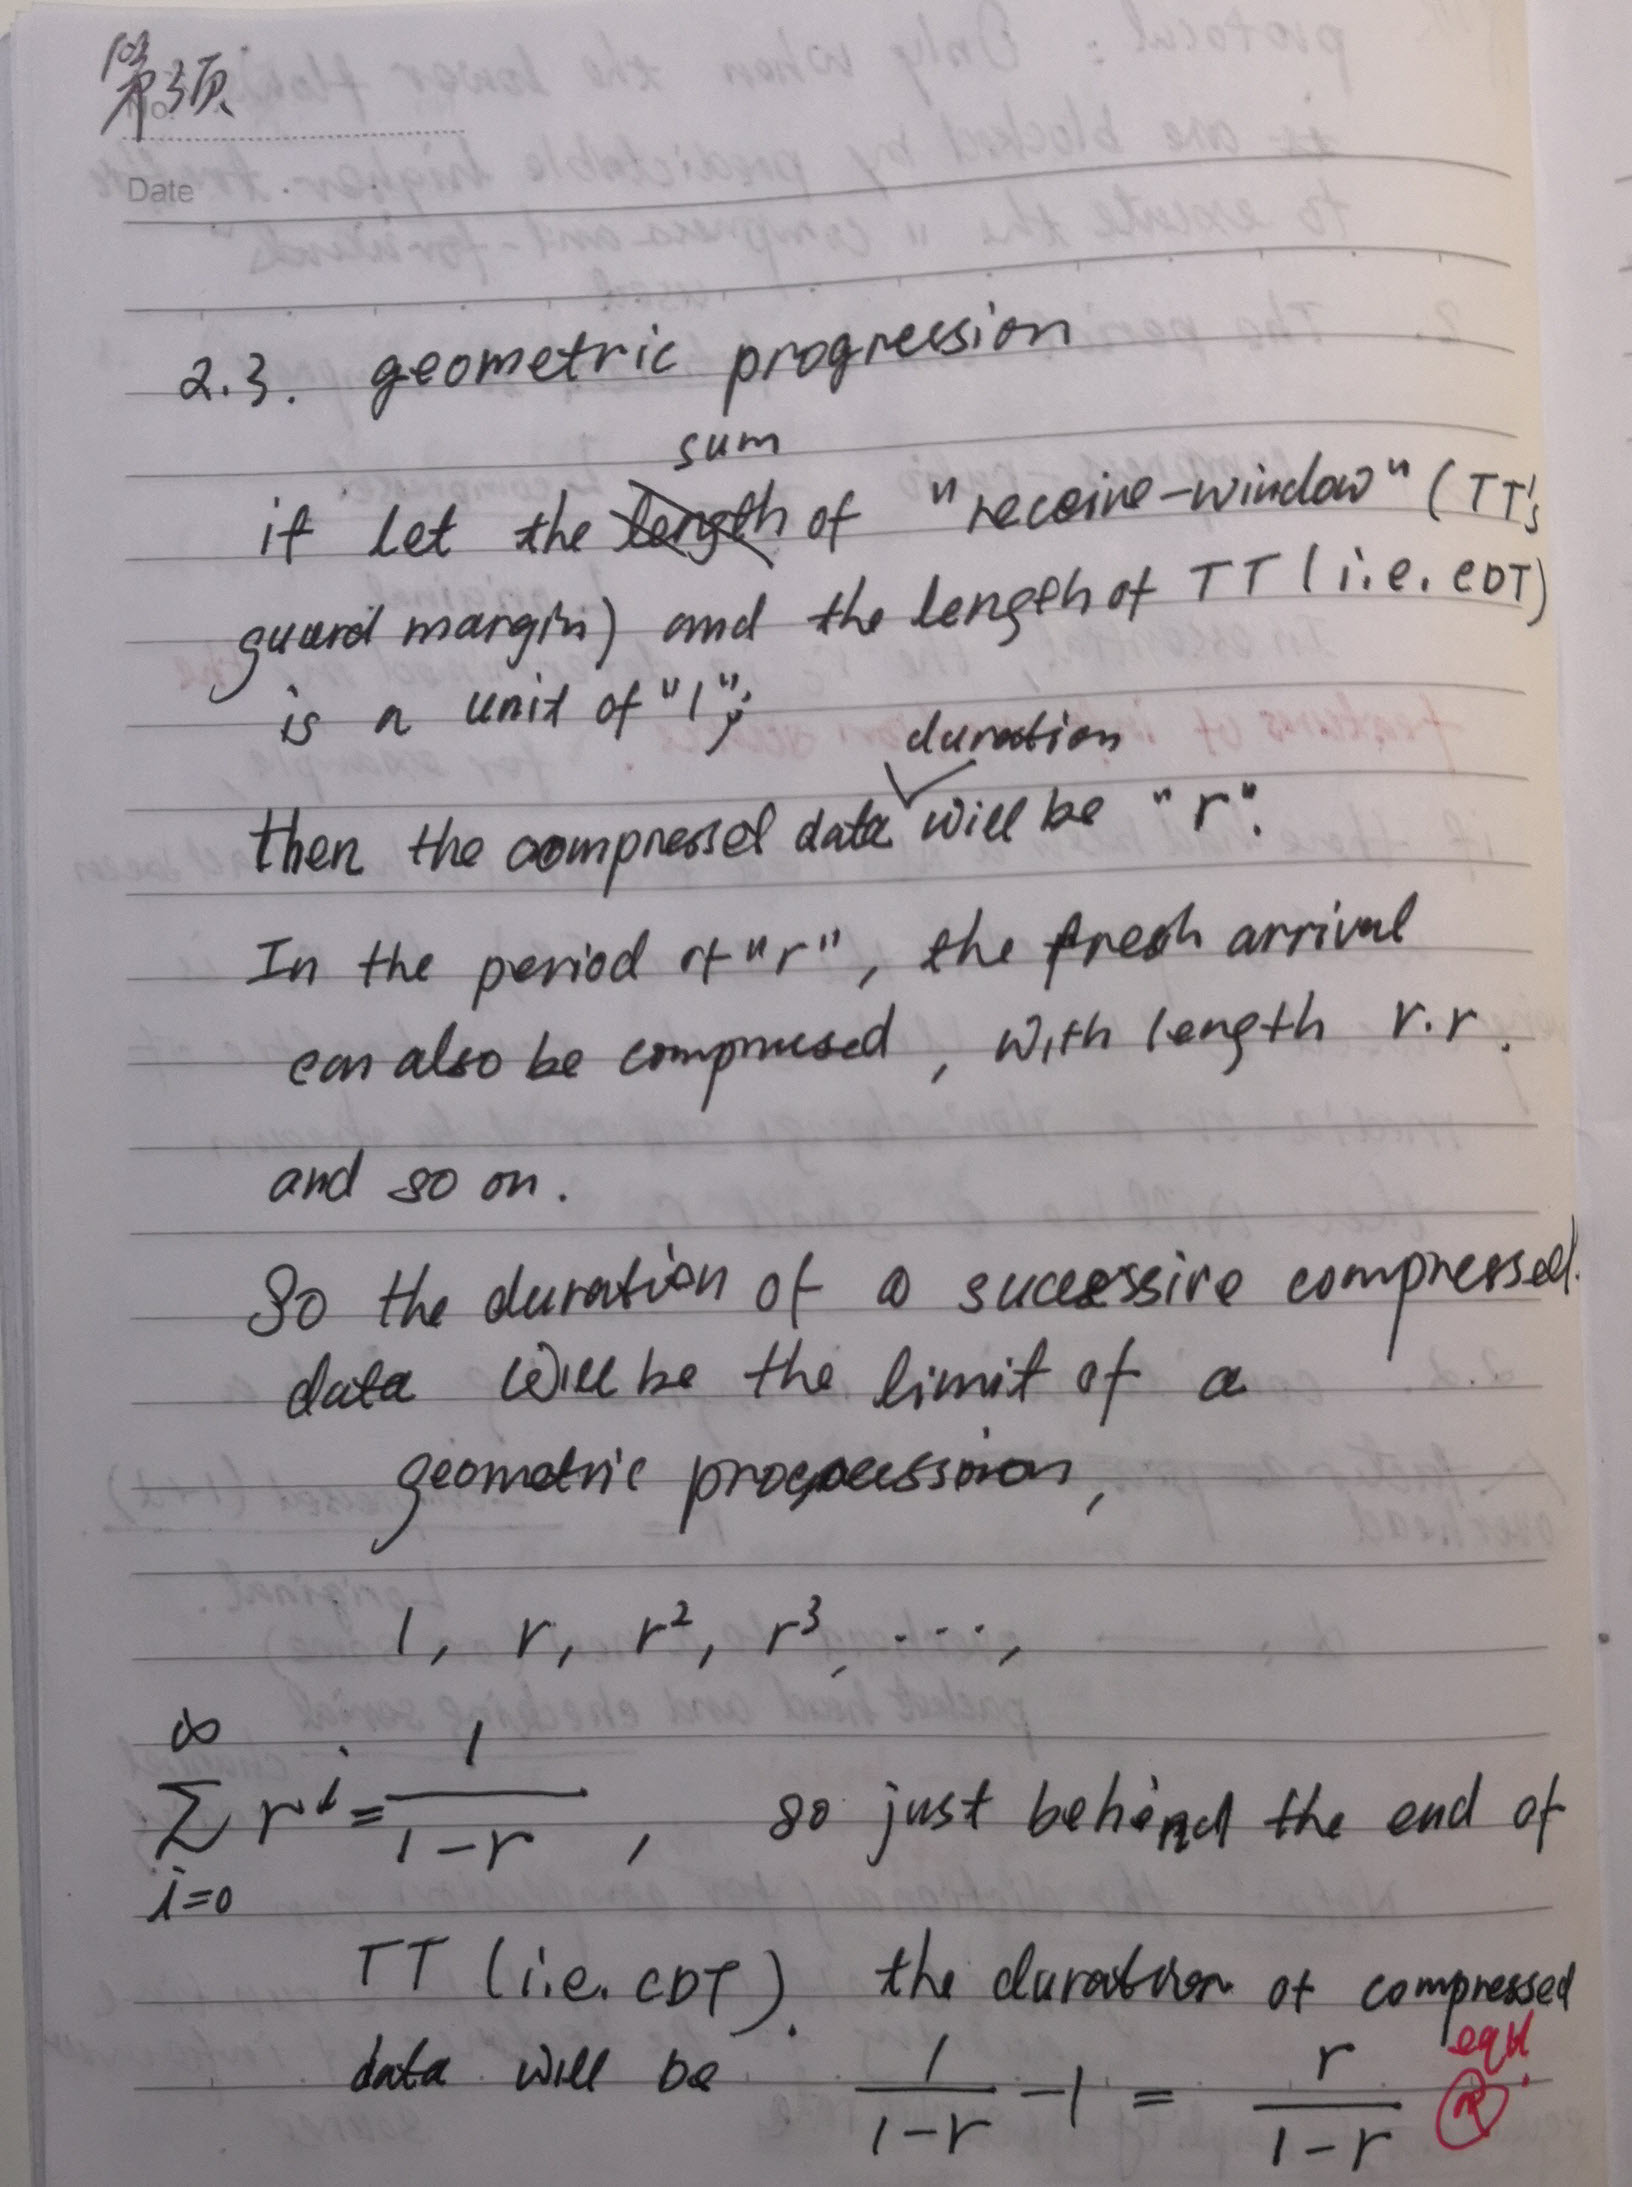 第3页
No.
Date
2.3. geometric progression
sum
if let the length of "receive-window" (TT's
guard margin) and the length of TT (i.e. CDT)
is a unit of "1";
duration
then the compressed data will be "r".
In the period of "r", the fresh arrival
can also be compressed, with length r.r.
and so on.
So the duration of a sucessive compressed
data will be the limit of a
geometric progression,
1, r, r², r³, ...,
∞
∑ rⁱ = 1/(1-r) , so just behind the end of
i=0
TT (i.e. CDT). the duration of compressed
data will be 1/(1-r) - 1 = r/(1-r)